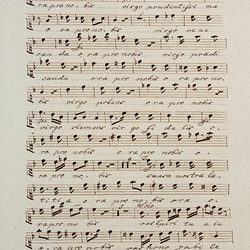 ra pro no bis virgo prudentissi ma
o ra pro no bis virgo vene
ran da o ra pro nobis virgo praedi
canda o ra pro nobis o ra pro no
bis virgo potens o ra pro nobis
virgo clemens vir go fi de lis o
ra pro nobis o ra pro nobis
ra pro no bis causa nostrae lae
ti ti ae o ra pro nobis o ra o
ra pro no bis
ra pro nobis vas hono ra bi le